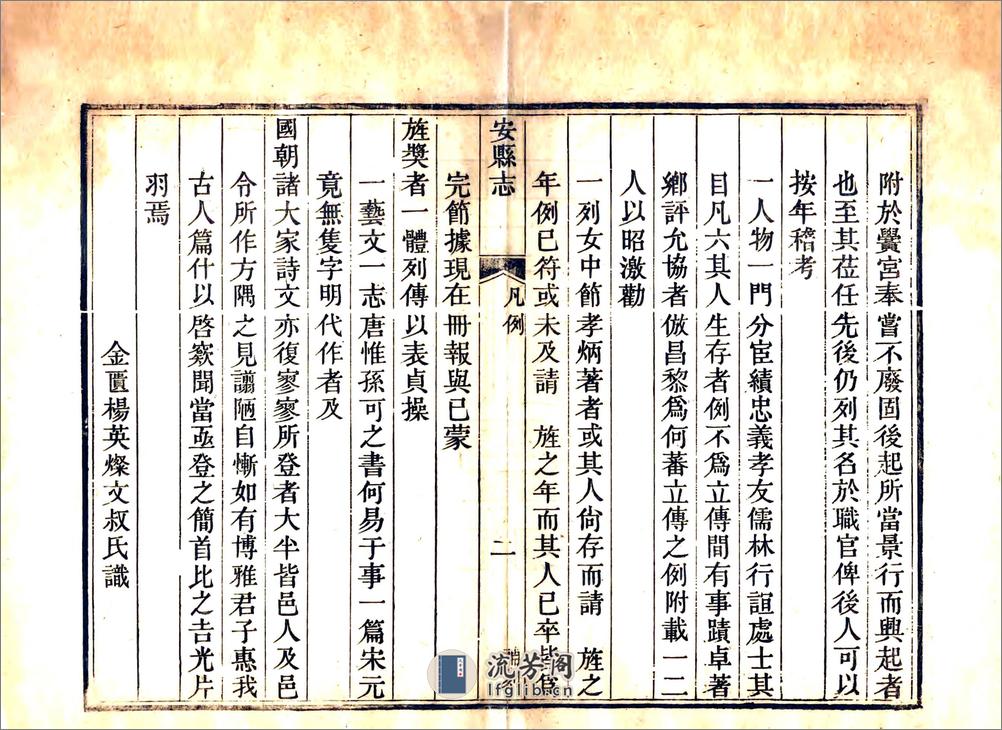 附於黌宮奉嘗不廢固後起所當景行而興起者
也至其莅任先後仍列其名於職官俾後人可以
按年稽考
一人物一門分宦績忠義孝友儒林行誼處士其
目凡六其人生存者例不爲立傳間有事蹟卓著
鄉評允協者倣昌黎爲何蕃立傳之例附載一二
人以昭激勸
一列女中節孝炳著者或其人尙存而請　旌之
年例已符或未及請　旌之年而其人已卒皆爲
安縣志　凡例　二
完節據現在冊報與已蒙
旌獎者一體列傳以表貞操
一藝文一志唐惟孫可之書何易于事一篇宋元
竟無隻字明代作者及
國朝諸大家詩文亦復寥寥所登者大半皆邑人及邑
令所作方隅之見譾陋自慚如有博雅君子惠我
古人篇什以啓窾聞當亟登之簡首比之吉光片
羽焉
金匱楊英燦文叔氏識
流芳閣
lfglib.cn